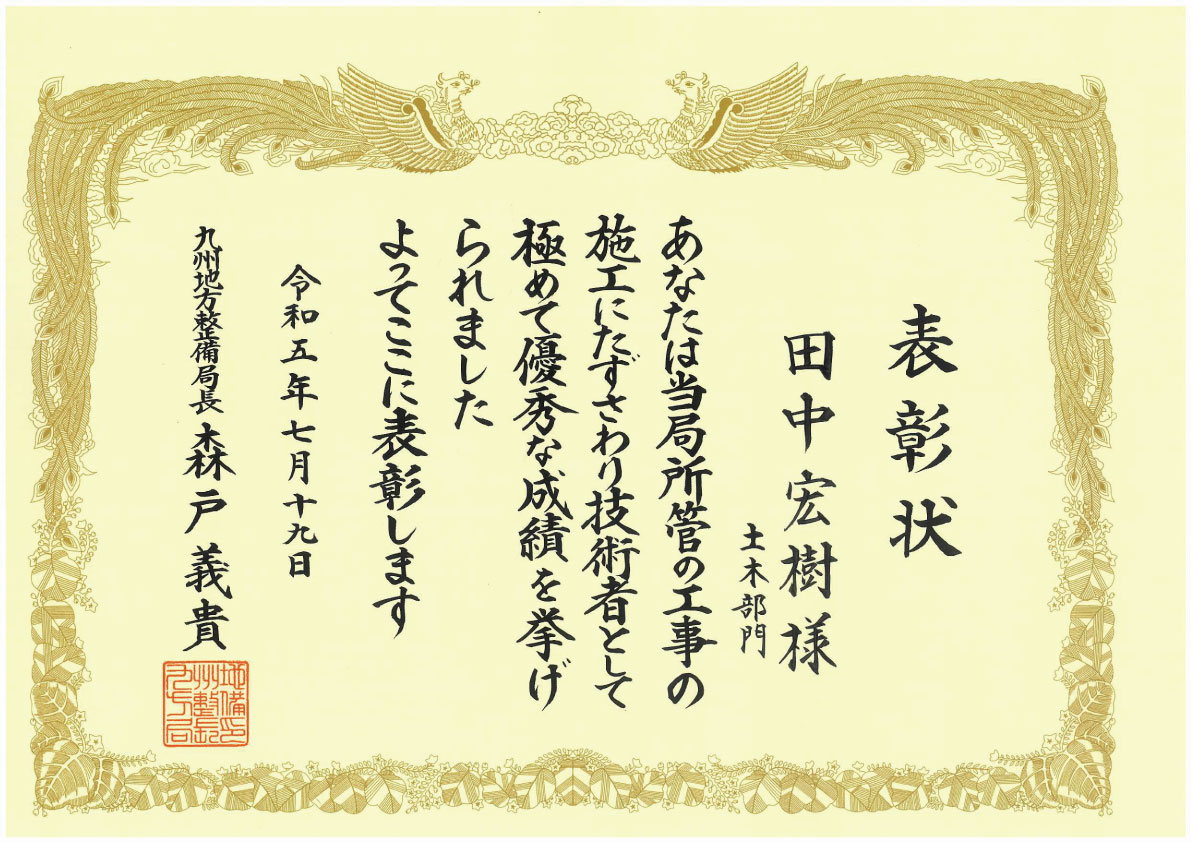 表彰状
田中宏樹様
土木部門
あなたは当局所管の工事の
施工にたずさわり技術者として
極めて優秀な成績を挙げ
られました
よってここに表彰します
令和五年七月十九日
九州地方整備局長 森戸義貴